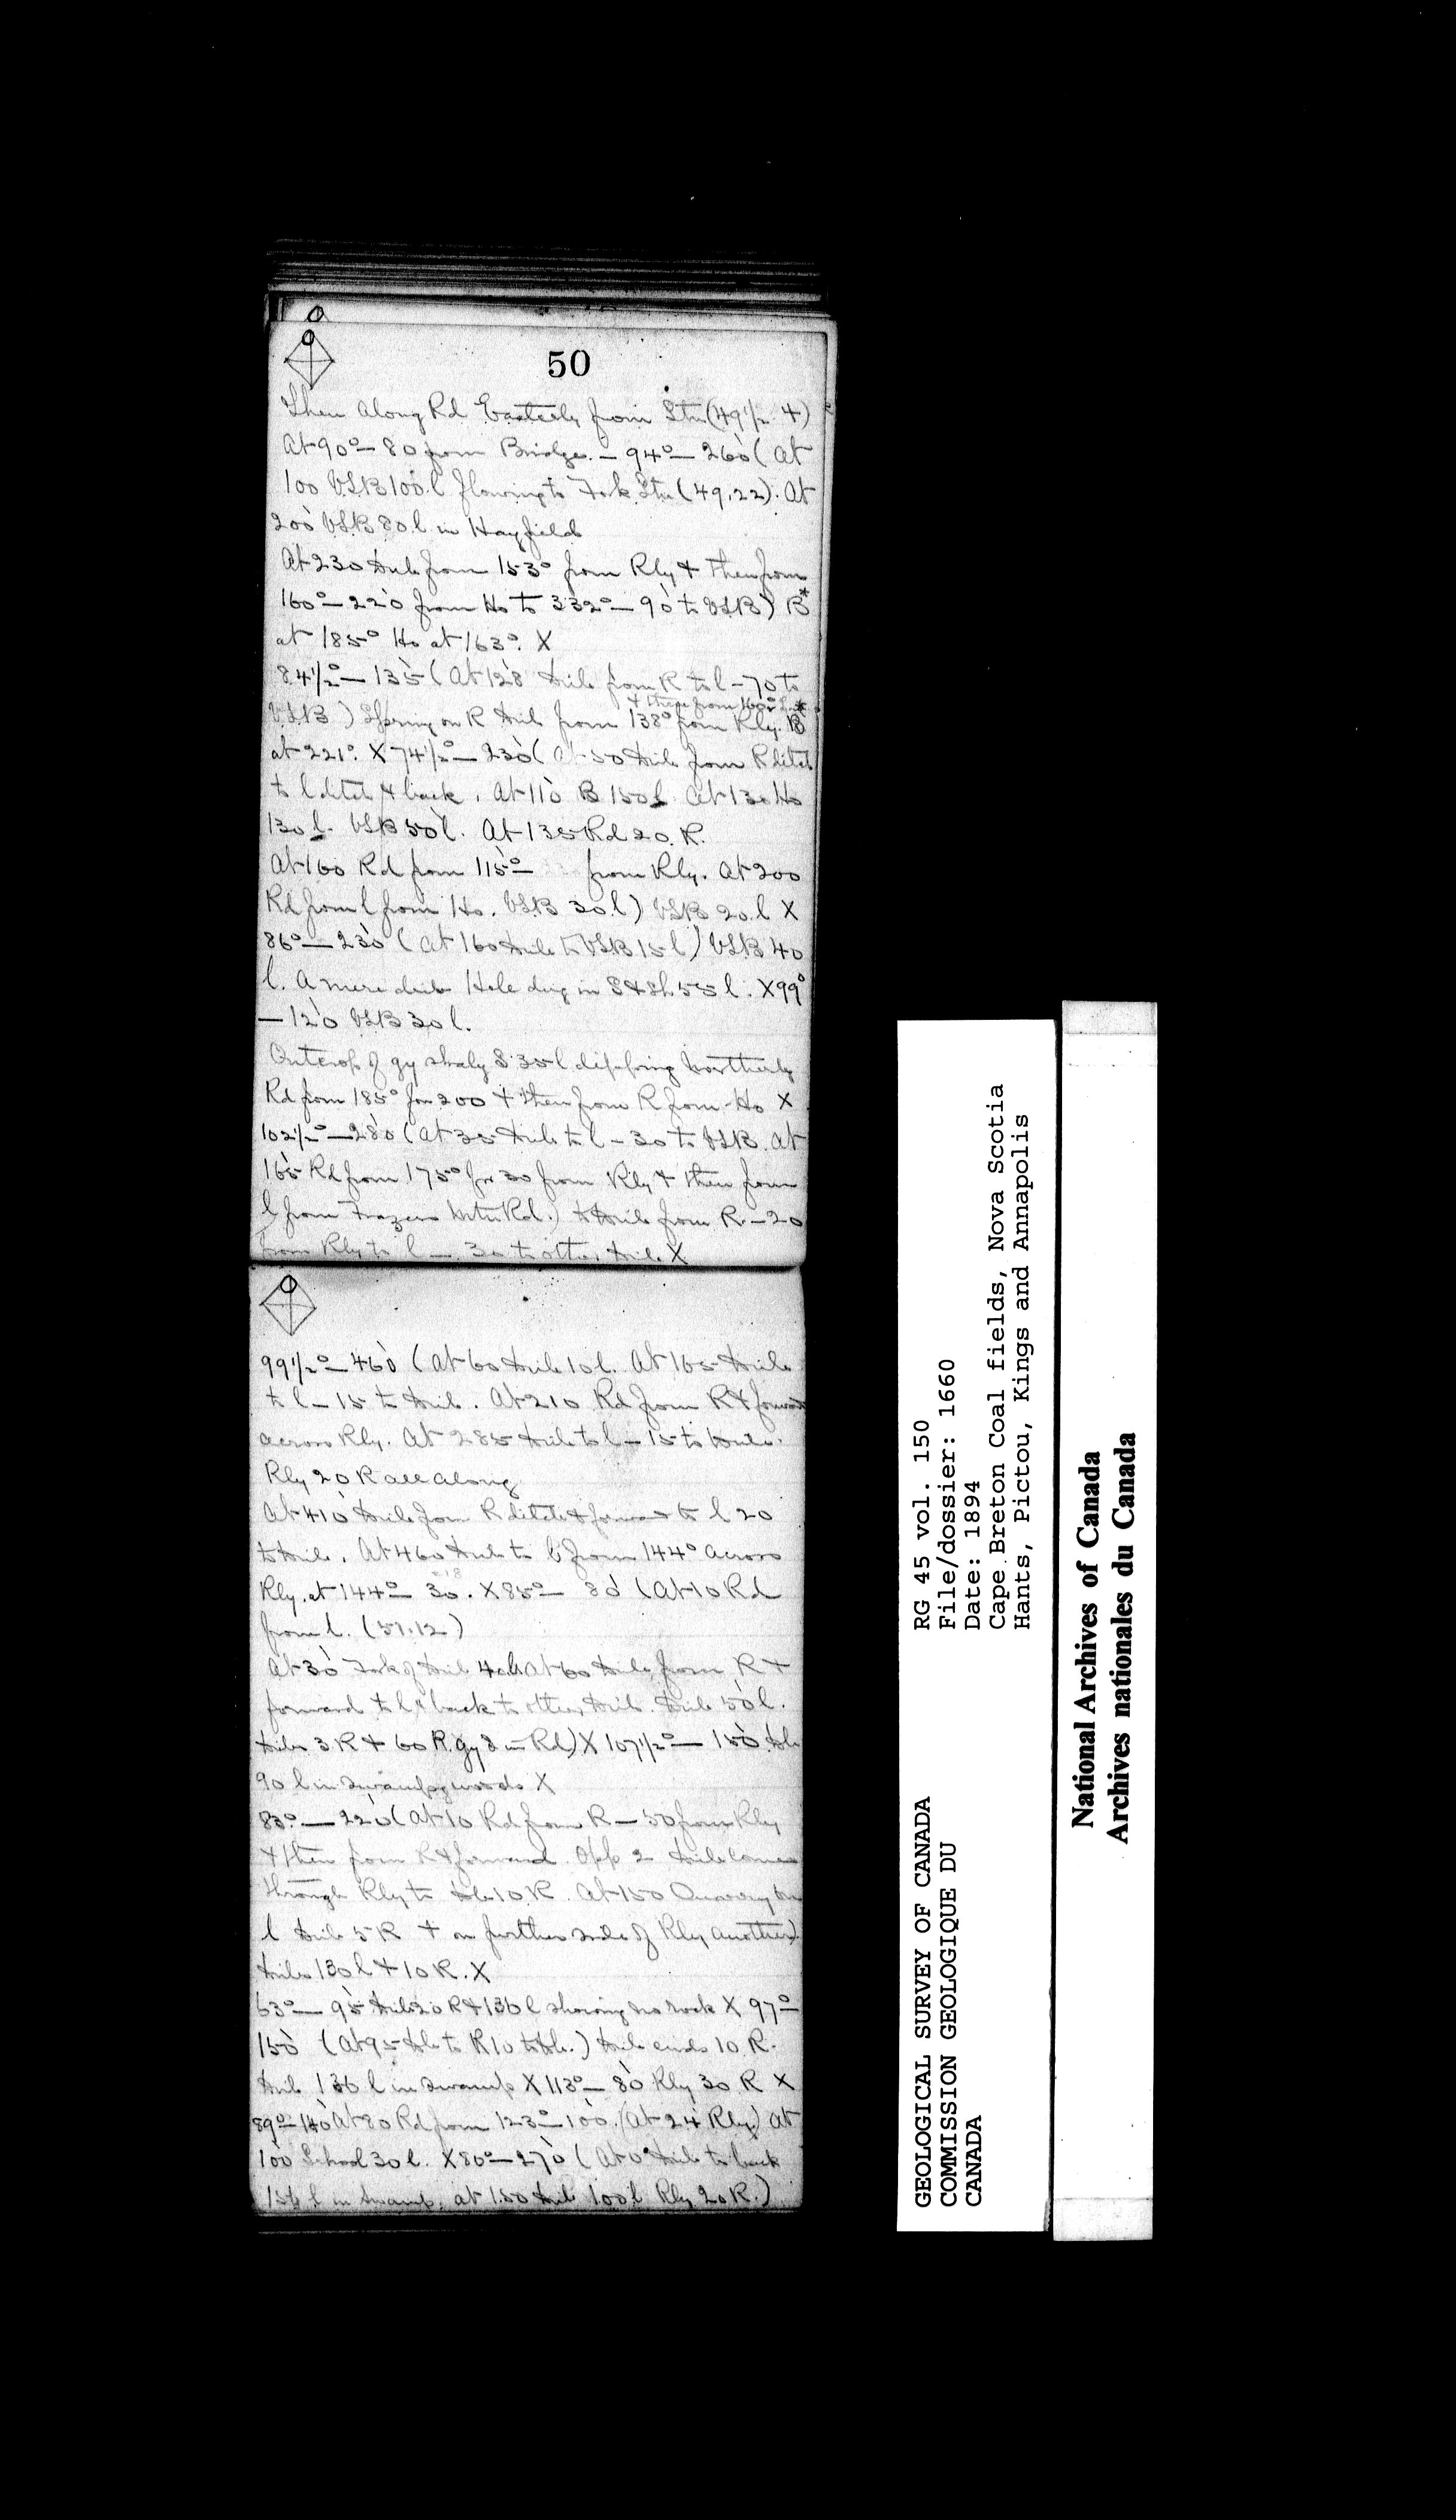 50
Then along Rd Easterly from Stn (49½ 4)
At 90° — 80 from Bridge. — 94° — 260 (At
100 VSB 100 l flowing to Fork Stn (49,22). At
200 VSB 80 l in Hayfield
At 230 from 153° from Rly & then from
160° — 220 from Ho to 332° — 90 to VSB) B*
at 185° Ho at 163°. X
84½° — 135 (At 128 from R to l — 70 to
& then from 160°
VSB) Spring on R from 138° from Rly. B*
at 221°. X 74½° — 230 (At 50 from R ditch
to l ditch & back. At 110 B 150 l. At 130 Ho
130 l. VSB 50 l. At 135 Rd 20 R.
At 160 Rd from 115° — from Rly. At 200
Rd from l from Ho. VSB 30 l) VSB 20 l X
86° — 230 (At 160 to VSB 15 l) VSB 40
l. A mere Hole dug in S & Sh 55 l. X 99°
— 120 VSB 30 l.
Outcrop of gy shaly S 35 l dipping Northerly
Rd from 185° for 200 & then from R from Ho X
102½° — 280 (At 35 to l — 30 to VSB. At
165 Rd from 175° for 30 from Rly & then from
l from Frazers Rd.) from R. — 20
from Rly to l — 30 to other X
99½° — 460 (At 60 10 l. At 165
to l — 15 to . At 210 Rd from R & forward
across Rly. At 285 to l — 15 to
Rly 20 R all along
At 410 from R ditch & forward to l 20
to . At 460 to l from 144° across
Rly. at 144° — 30. X 85° — 80 (At 10 Rd
from l. (51.12)
At 30 Fork of At 60 from R &
forward to l & back to other . 50 l.
3 R & 60 R. gy S in Rd) X 107½° — 150
90 l in swampy woods X
83° — 220 (At 10 Rd from R — 50 from Rly
& then from R & forward. Opp 2 comes
through Rly to 10 R. At 150 Quarry on
l 5 R & on further side of Rly another)
130 l & 10 R. X
63° — 95 20 R & 136 l showing no rock X 97° —
150 (At 95 to R 10 to .) ends 10 R.
136 l in swamp X 113° — 80 Rly 30 R X
89° — 140 At 80 Rd from 123° — 100. (At 24 Rly) At
100 School 30 l. X 80° — 270 (At 0 to back
156 l in swamp, at 150 100 l Rly 20 R.)
GEOLOGICAL SURVEY OF CANADA
COMMISSION GEOLOGIQUE DU
CANADA
RG 45 vol. 150
File/dossier: 1660
Date: 1894
Cape Breton Coal fields, Nova Scotia
Hants, Pictou, Kings and Annapolis
National Archives of Canada
Archives nationales du Canada